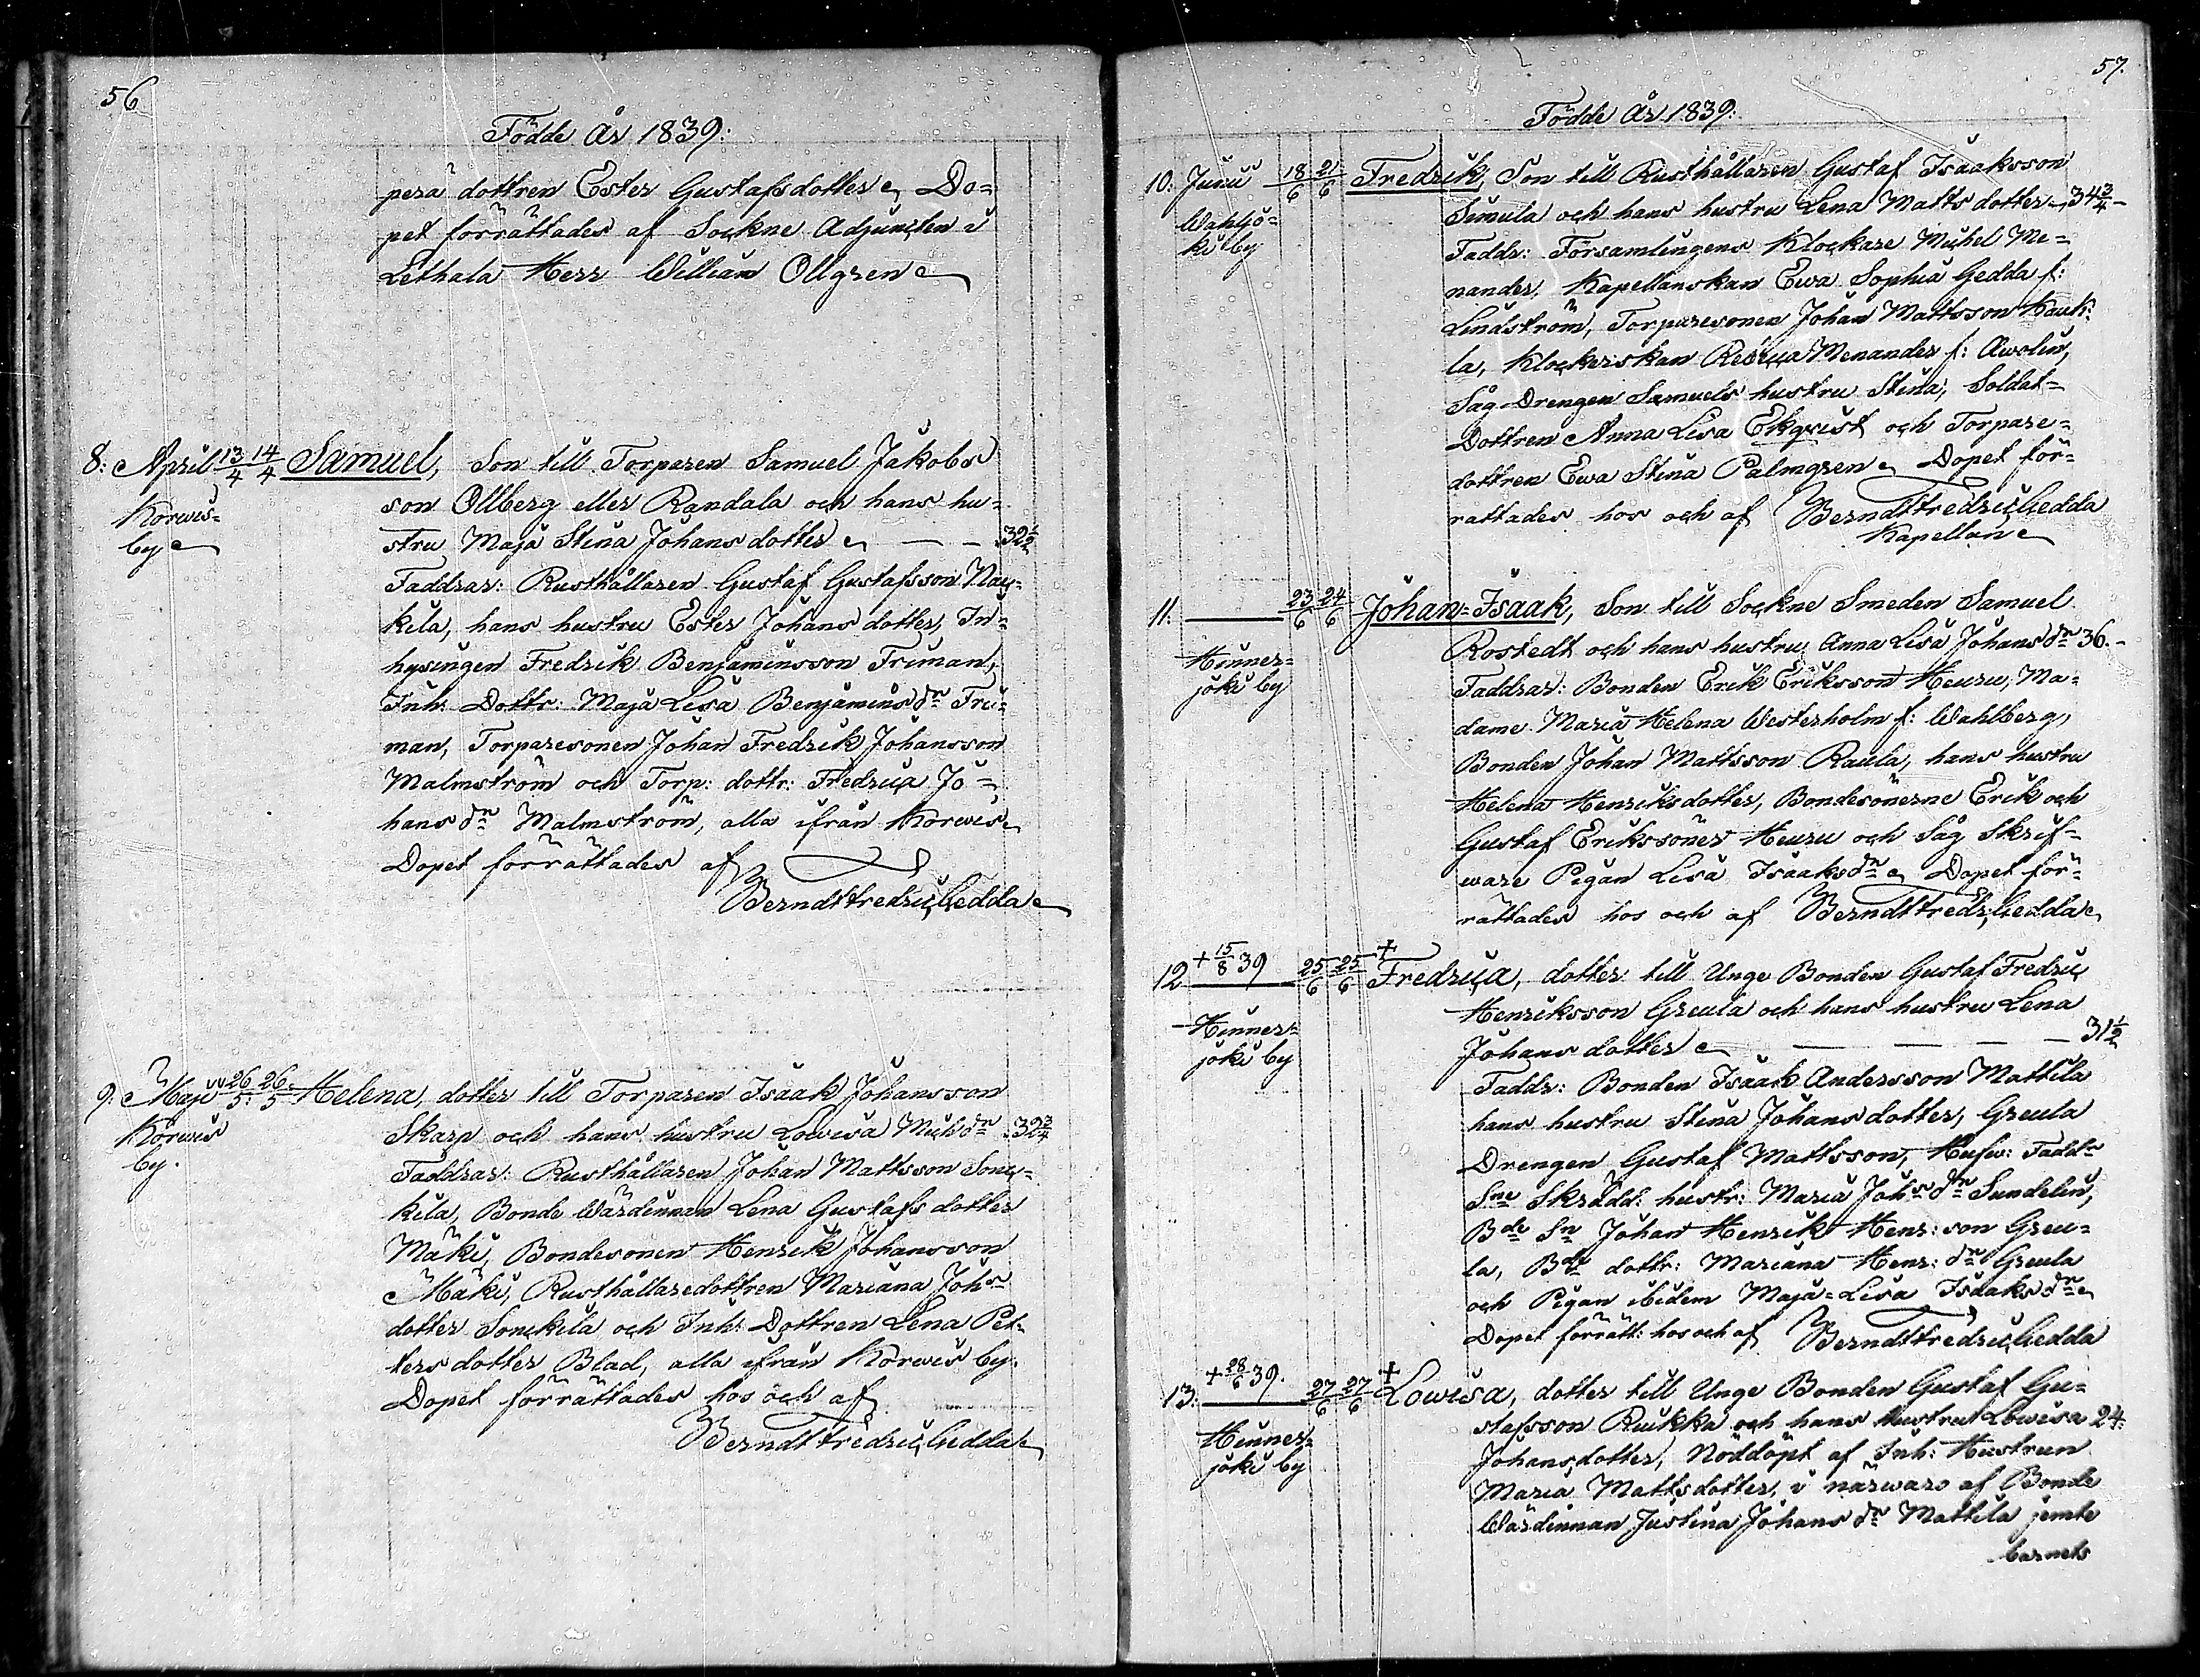 56
Födde År 1839:
pera dottren Ester Gustafsdotter Do=
pet förrättades af Sockne Adjuncten i
Lethala Herr William Ollgren
8: April 13/4 14/4 Samuel, Son till Torparen Samuel Jakobs
son Ollberg eller Randala och hans hu=
stru Maja Stina Johansdotter — — 32½
Korwis=
by
Faddrar: Rusthållaren Gustaf Gustafsson Nay=
kila, hans hustru Ester Johans dotter, In=
hysingen Fredrik Benjaminsson Friman,
Inh: Dottr: Maja Lisa Benjamins dr Fri=
man, Torparesonen Johan Fredrik Johansson
Malmström och Torp: dottr: Fredrica Jo=
hans dr Malmström, alla ifrån Korwis
Dopet förrättades af
Berndt Fredric Gedda
9: Maji 26/5 26/5 Helena, dotter till Torparen Isaak Johansson
Skarp och hans hustru Lowisa Mich dr 32¾
Körwis
by.
Faddrar: Rusthållaren Johan Mattsson Sonc=
kila, Bonde Wärdinnan Lena Gustafs dotter
Mäki, Bondesonen Henrik Johansson
Mäki, Rusthållaredottren Mariana Johs
dotter Sonckila och Inh: Dottren Lena Pet=
ters dotter Blad, alla ifrån Körwis by.
Dopet förrättades hos och af
Berndt Fredric Gedda
57.
Födde År 1839:
10: Junii 18/6 21/6 Fredrik, Son till Rusthållaren Gustaf Isaaksson
Simula och hans hustru Lena Matts dotter 34¾ –
Wahljo=
ki by
Faddr: Församlingens Klockare Michel Me=
nander, Kapellanskan Ewa Sophia Gedda f:
Lindström, Torparesonen Johan Mattsson Kauk:
la, Klockerskan Menander f: Awolin,
Såg-Drengen Samuels hustru Stina, Soldat=
Dottren Anna Lisa Ekqvist och Torpare=
dottren Ewa Stina Palmgren Dopet för=
rättades hos och af Berndt Fredric Gedda
Kapellan
11: — 23/6 24/6 Johan=Isaak, Son till Sockne Smeden Samuel
Rostedt och hans hustru Anna Lisa Johans dr 36.–
Hinner=
joki by
Faddrar: Bonden Erik Eriksson Heuru, Ma=
dame Maria Helena Westerholm f: Wahlberg,
Bonden Johan Mattsson Raula, hans hustru
Helena Henriksdotter, Bondesönerne Erik och
Gustaf Erikssöner Heuru och Såg Skrif=
ware Pigan Lisa Isaaks dr Dopet för=
rättades hos och af Berndt Fredr: Gedda
12 + 15/8 39 25/6 25/6 + Fredrica, dotter till Unge Bonden Gustaf Fredric
Henriksson Greula och hans hustru Lena
Johans dotter — — — — 31½
Hinner=
joki by
Faddr: Bonden Isaak Andersson Mattila
hans hustru Stina Johans dotter, Greula
Drengen Gustaf Mattsson, Hufw: Faddr
Sne Skrädd: hustr: Maria Johs dr Sundelin,
Bde Sn Johan Henrik Henr: son Greu=
la, Bde dottr: Mariana Henr: dr Greula
och Pigan ibidem Maja=Lisa Isaaks dr
Dopet förrätt: hos och af Berndt Fredric Gedda
13: + 28/6 39. 27/6 27/6 + Lowisa, dotter till Unge Bonden Gustaf Gu=
stafsson Ruikka och hans hustru Lowisa 24.
Hinner=
joki by
Johansdotter, Nöddöpt af Inh: Hustrun
Maria Mattsdotter, i närwaro af Bonde
Wärdinnan Justina Johans dr Mattila jemte
barnets